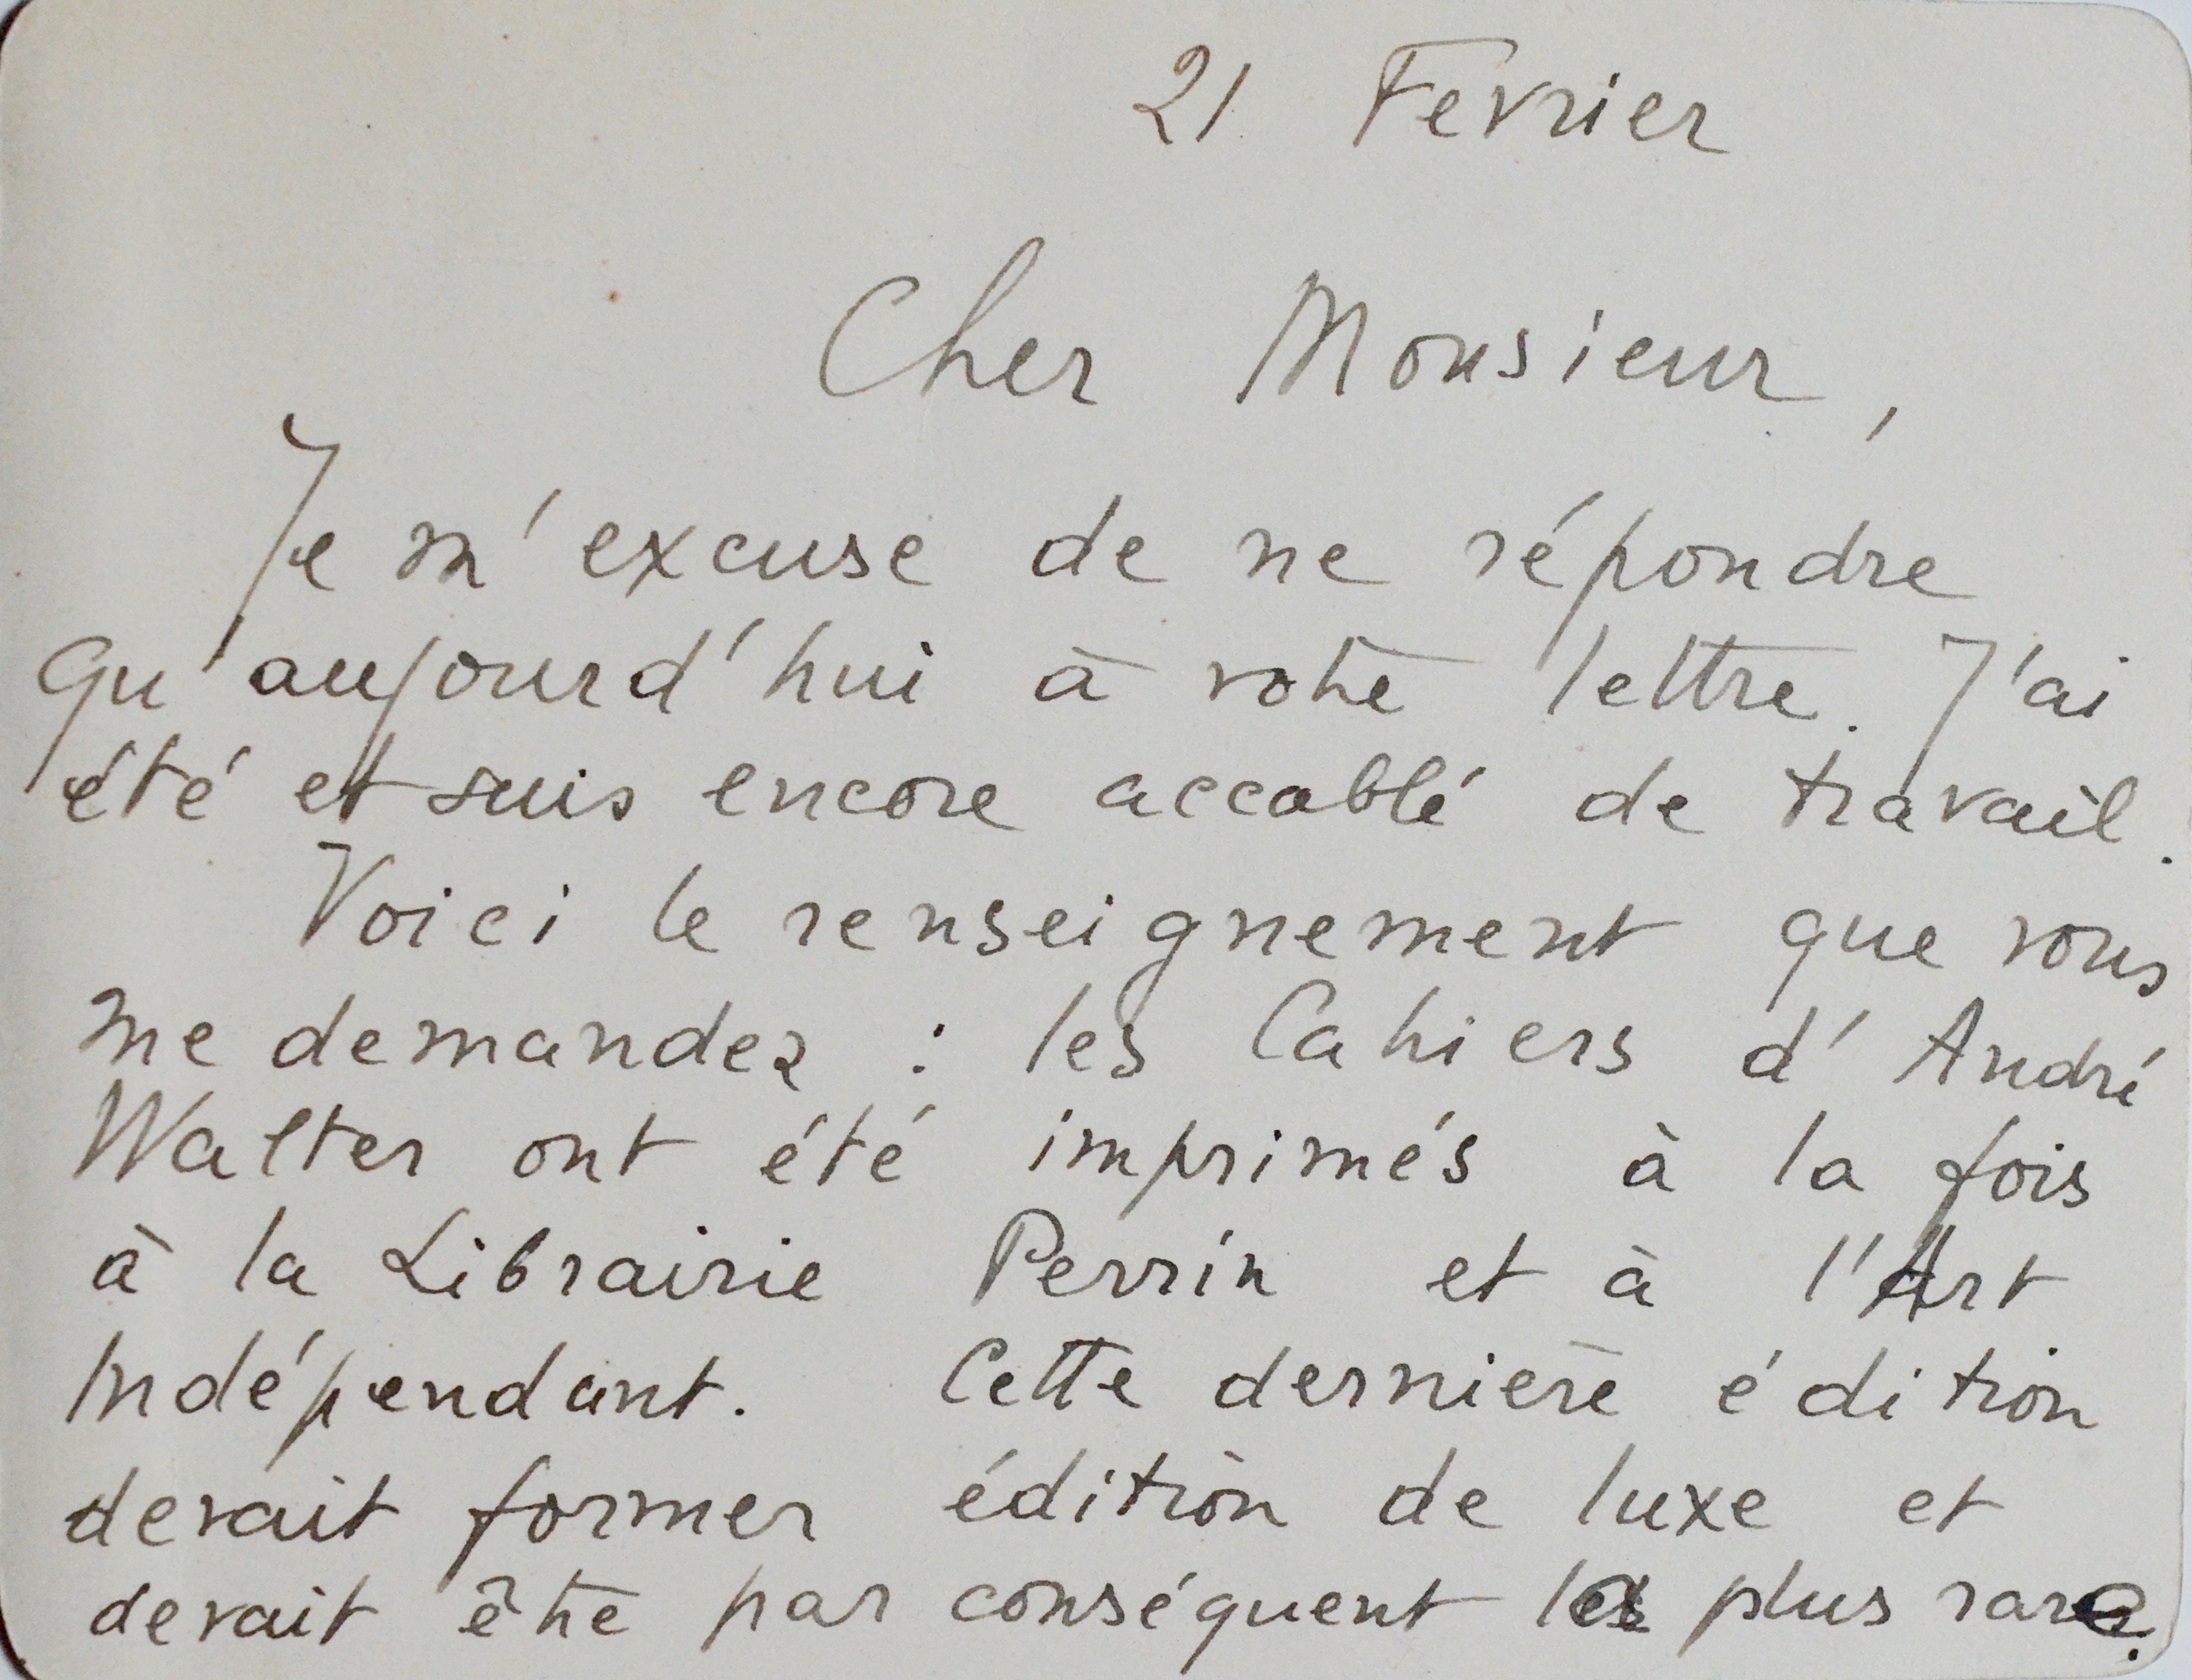 21 Fevrier
Cher Monsieur,
Je m'excuse de ne répondre
qu'aujourd'hui à votre lettre. J'ai
été et suis encore accablé de travail.
Voici le renseignement que vous
me demandez : les Cahiers d'André
Walter ont été imprimés à la fois
à la Librairie Perrin et à l'Art
Indépendant. Cette dernière édition
devait former édition de luxe et
devait être par conséquent la plus rare.